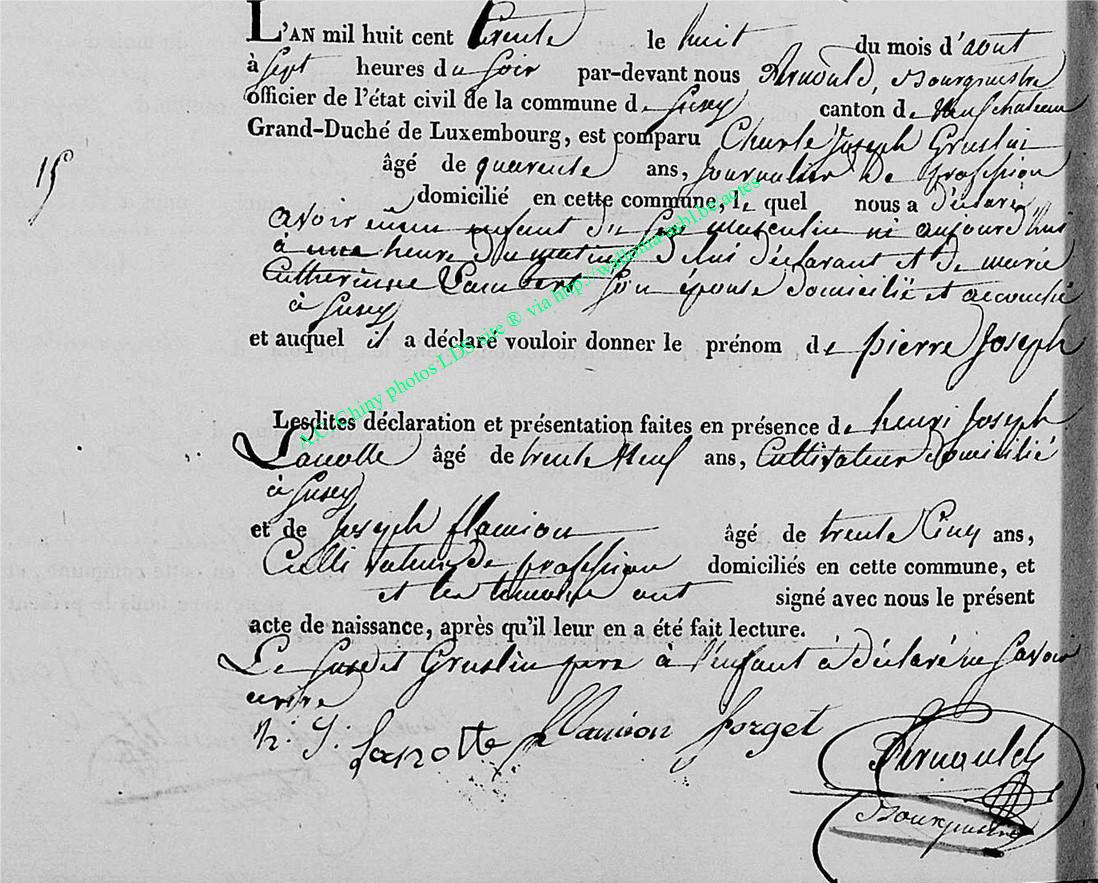 L'AN mil huit cent trente le huit du mois d'aout
à sept heures du soir par-devant nous Arnould, Bourgmestre
officier de l'état civil de la commune de Susey canton de Neufchateau
Grand-Duché de Luxembourg, est comparu Charle Joseph Gruslin
15
âgé de quarente ans, journalier de profession
domicilié en cette commune, le quel nous a déclaré
avoir eu un enfant du sex masculin né aujourd'hui
à une heure du matin de lui déclarant et de marie
Catherinne Lambert son épouse domicilié et accouché
à Susey
et auquel il a déclaré vouloir donner le prénom de pierre Joseph
A.C. Chiny photos LDS site ® via http://wallonia-mbl.be/actes
Lesdites déclaration et présentation faites en présence de henri Joseph
Lanotte âgé de trente Neuf ans, Cultivateur domicilié
à Susey
et de Joseph flamion âgé de trente Cinq ans,
Cultivateur de profession domiciliés en cette commune, et
et les temoins ont signé avec nous le présent
acte de naissance, après qu'il leur en a été fait lecture.
Le susdit Gruslin pere à l'enfant à déclaré ne savoir
ecrire
h. J. Lanotte flamion forget
Arnould
Bourgmestre